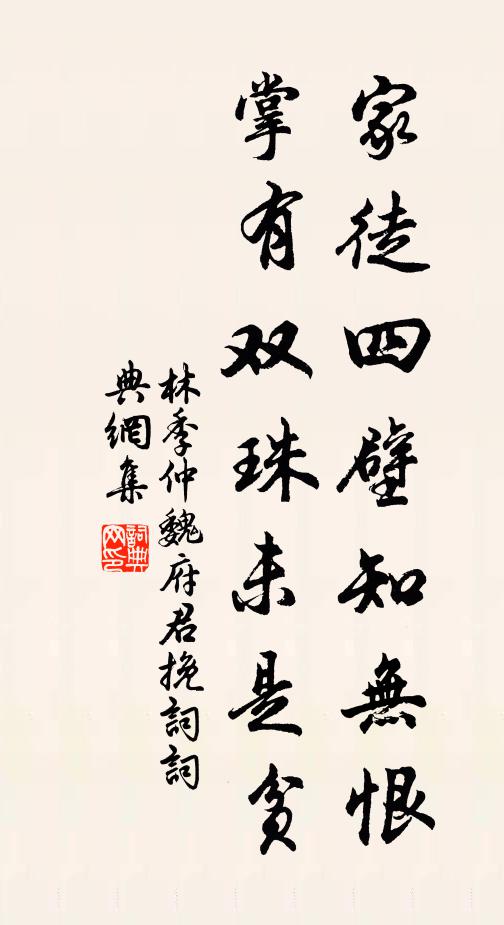 家徒四壁知無恨
掌有双珠未是貧
林季仲魏府君挽詞詞
典網集
詞典網印